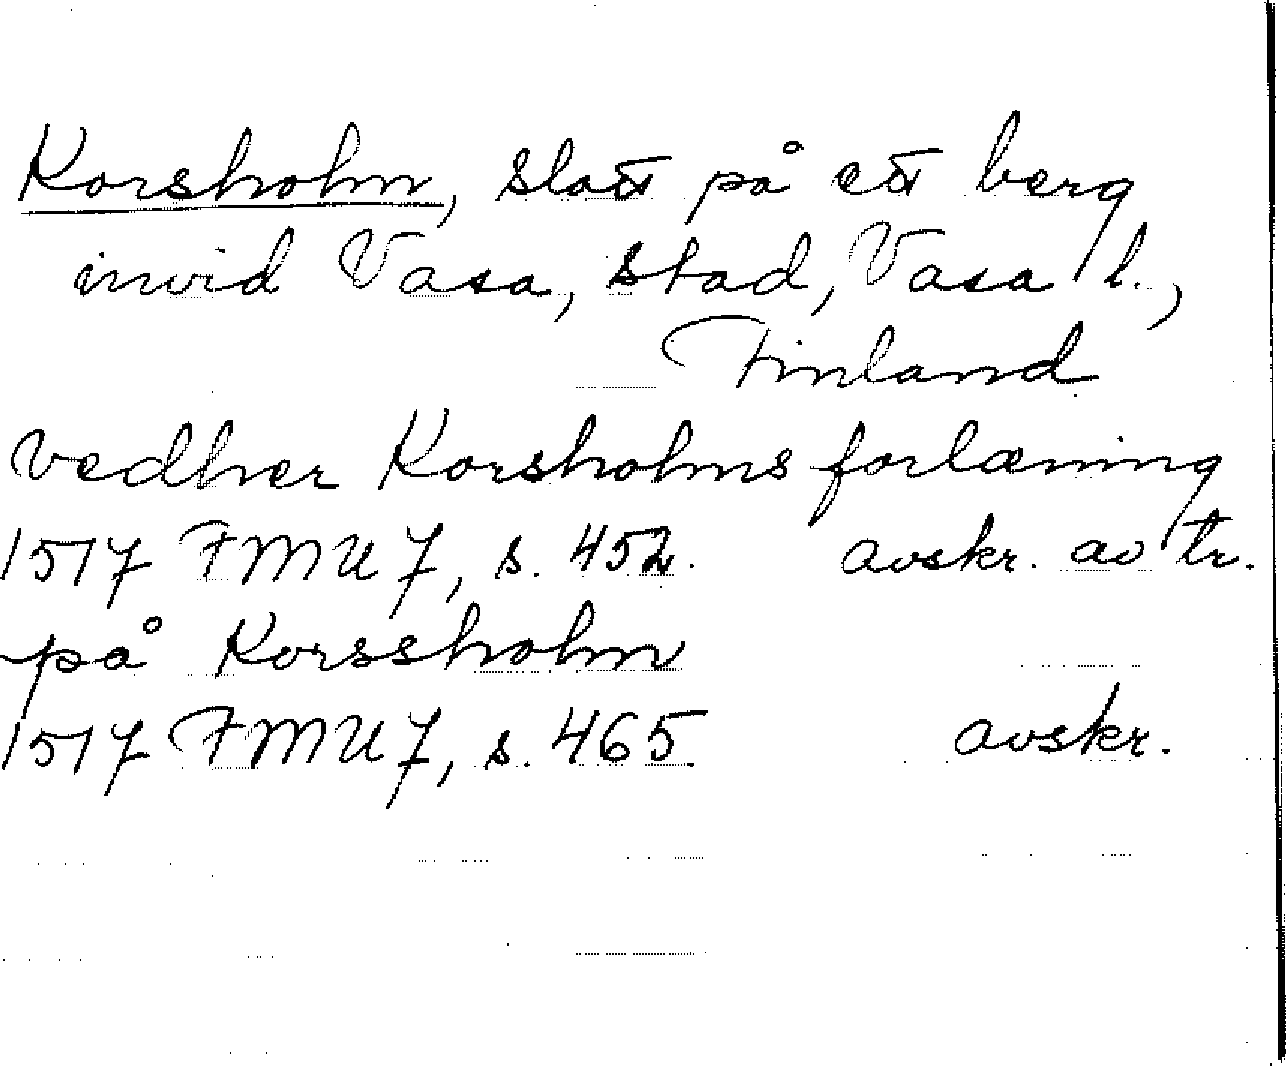 Korsholm, slott på ett berg
invid Vasa, stad, Vasa l.,
Finland
vedher Korsholms forlæning
1517 FMU 7, s. 452. avskr. av tr.
på Korssholm
1517 FMU 7, s. 465. avskr.